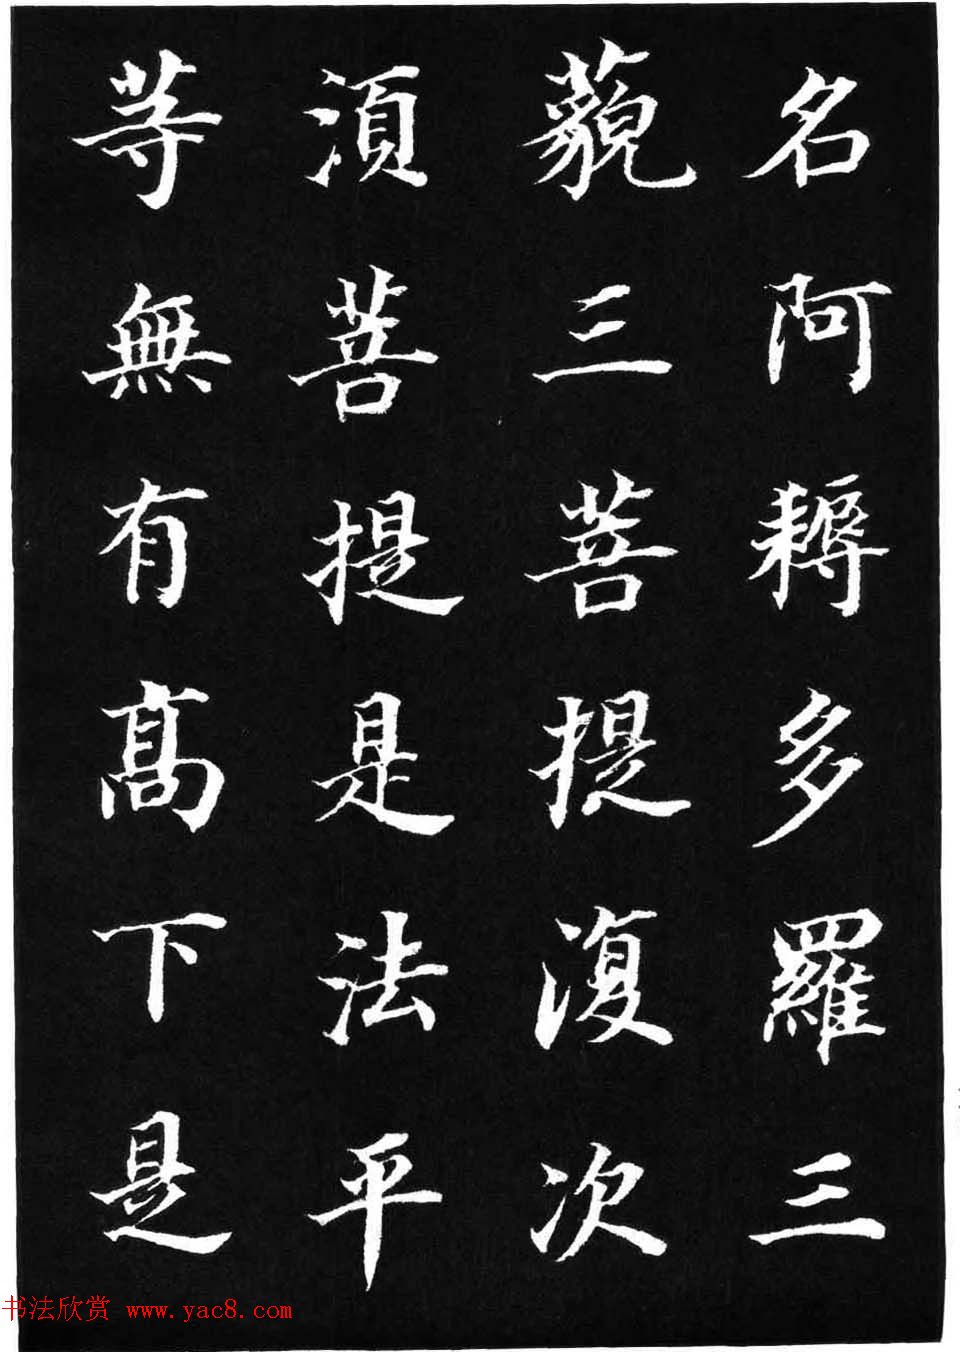 名阿耨多羅三
藐三菩提復次
須菩提是法平
等無有高下是
书法欣赏 www.yac8.com